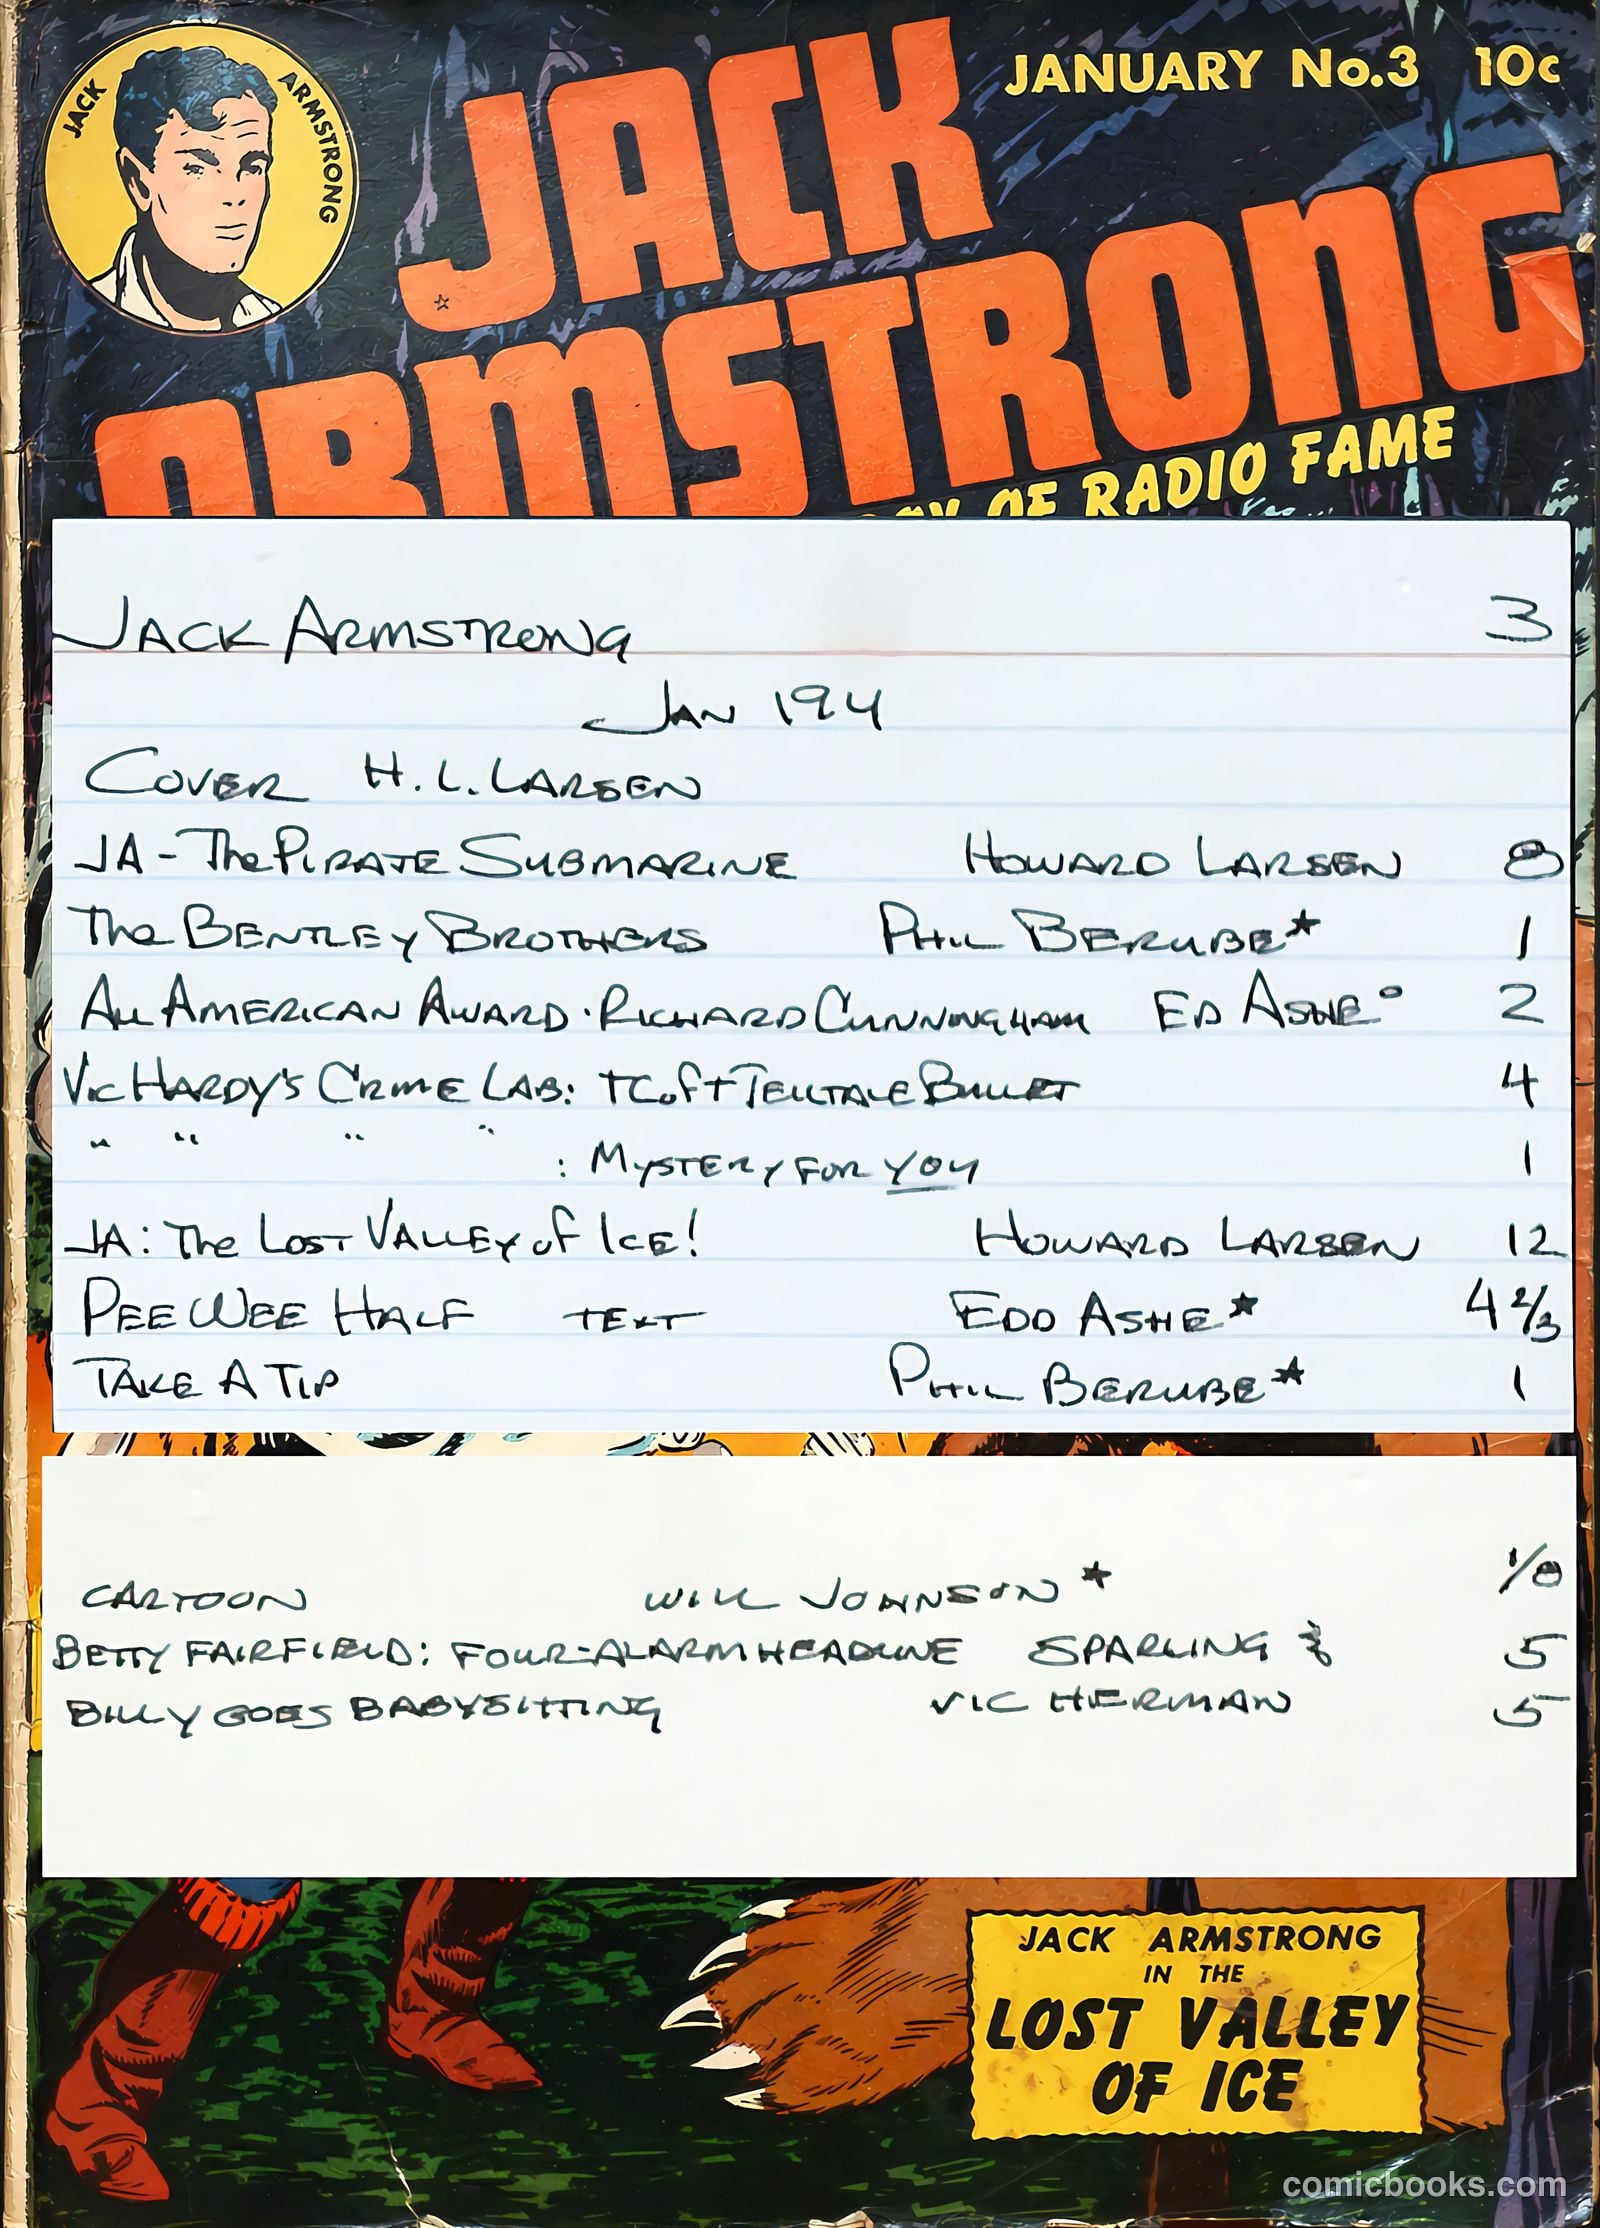 JACK ARMSTRONG
JANUARY No.3 10c
JACK
ARMSTRONG
OF RADIO FAME
JACK ARMSTRONG 3
JAN 194
COVER H. L. LARSEN
JA - The PIRATE SUBMARINE HOWARD LARSEN 8
The BENTLEY BROTHERS PHIL BERUBE★ 1
ALL AMERICAN AWARD · RICHARD CUNNINGHAM ED ASHE° 2
VIC HARDY'S CRIME LAB: TCofT TELLTALE BULLET 4
" " " " : MYSTERY FOR YOU 1
JA: The LOST VALLEY of ICE! HOWARD LARSEN 12
PEE WEE HALF TEXT EDD ASHE★ 4 2/3
TAKE A TIP PHIL BERUBE★ 1
CARTOON WILL JOHNSON★ 1/8
BETTY FAIRFIELD: FOUR-ALARM HEADLINE SPARLING & 5
BILLY GOES BABYSITTING VIC HERMAN 5
JACK ARMSTRONG
IN THE
LOST VALLEY
OF ICE
comicbooks.com